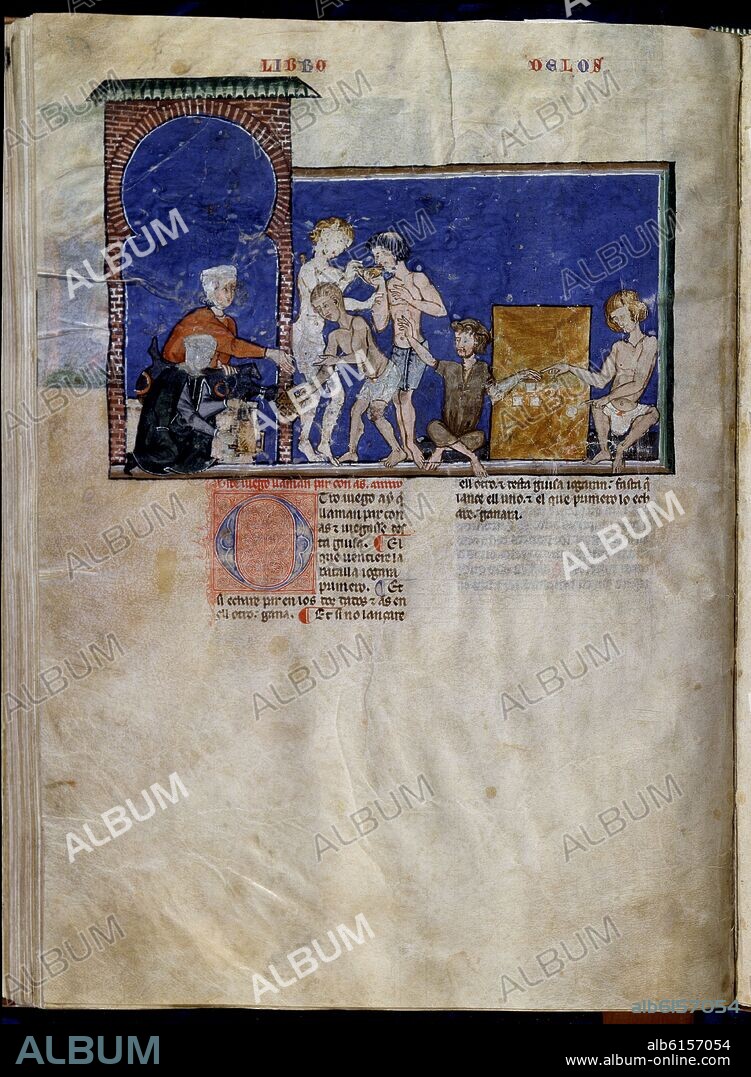 LIBRO DELOS
Otro iuego a y q̃
llaman par con
as ⁊ iuegasse des
ta guisa. ¶ El
que uenciere la
batalla iogara
primero. ¶ Et
si echare par en los dos dados ⁊ as en
ell otro. gana. ¶ Et si no lançare
ell otro. ⁊ desta guisa iogaran. fasta q̃
lance ell uno. ⁊ el que primero lo ech
are. ganara.
ALBUM
alb6157054
ALBUM
alb6157054
www.album-online.com